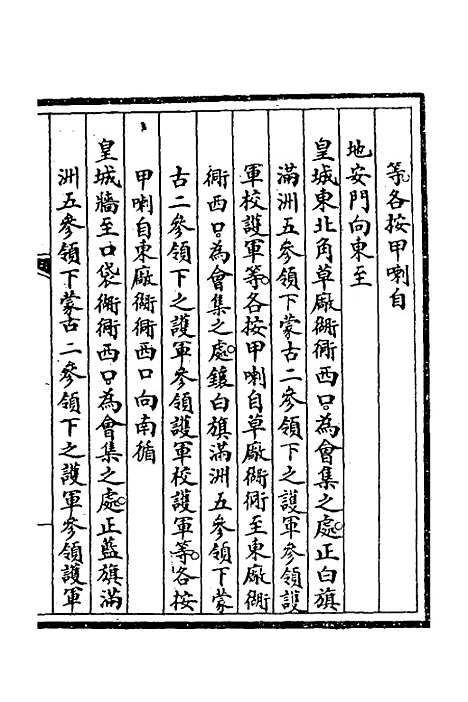 等各按甲喇自
地安門向東至
皇城東北角草廠衚衕西口為會集之處正白旗
滿洲五參領下蒙古二參領下之護軍參領護
軍校護軍等各按甲喇自草廠衚衕至東廠衚
衕西口為會集之處鑲白旗滿洲五參領下蒙
古二參領下之護軍參領護軍校護軍等各按
甲喇自東廠衚衕西口向南循
皇城牆至口袋衚衕西口為會集之處正藍旗滿
洲五參領下蒙古二參領下之護軍參領護軍